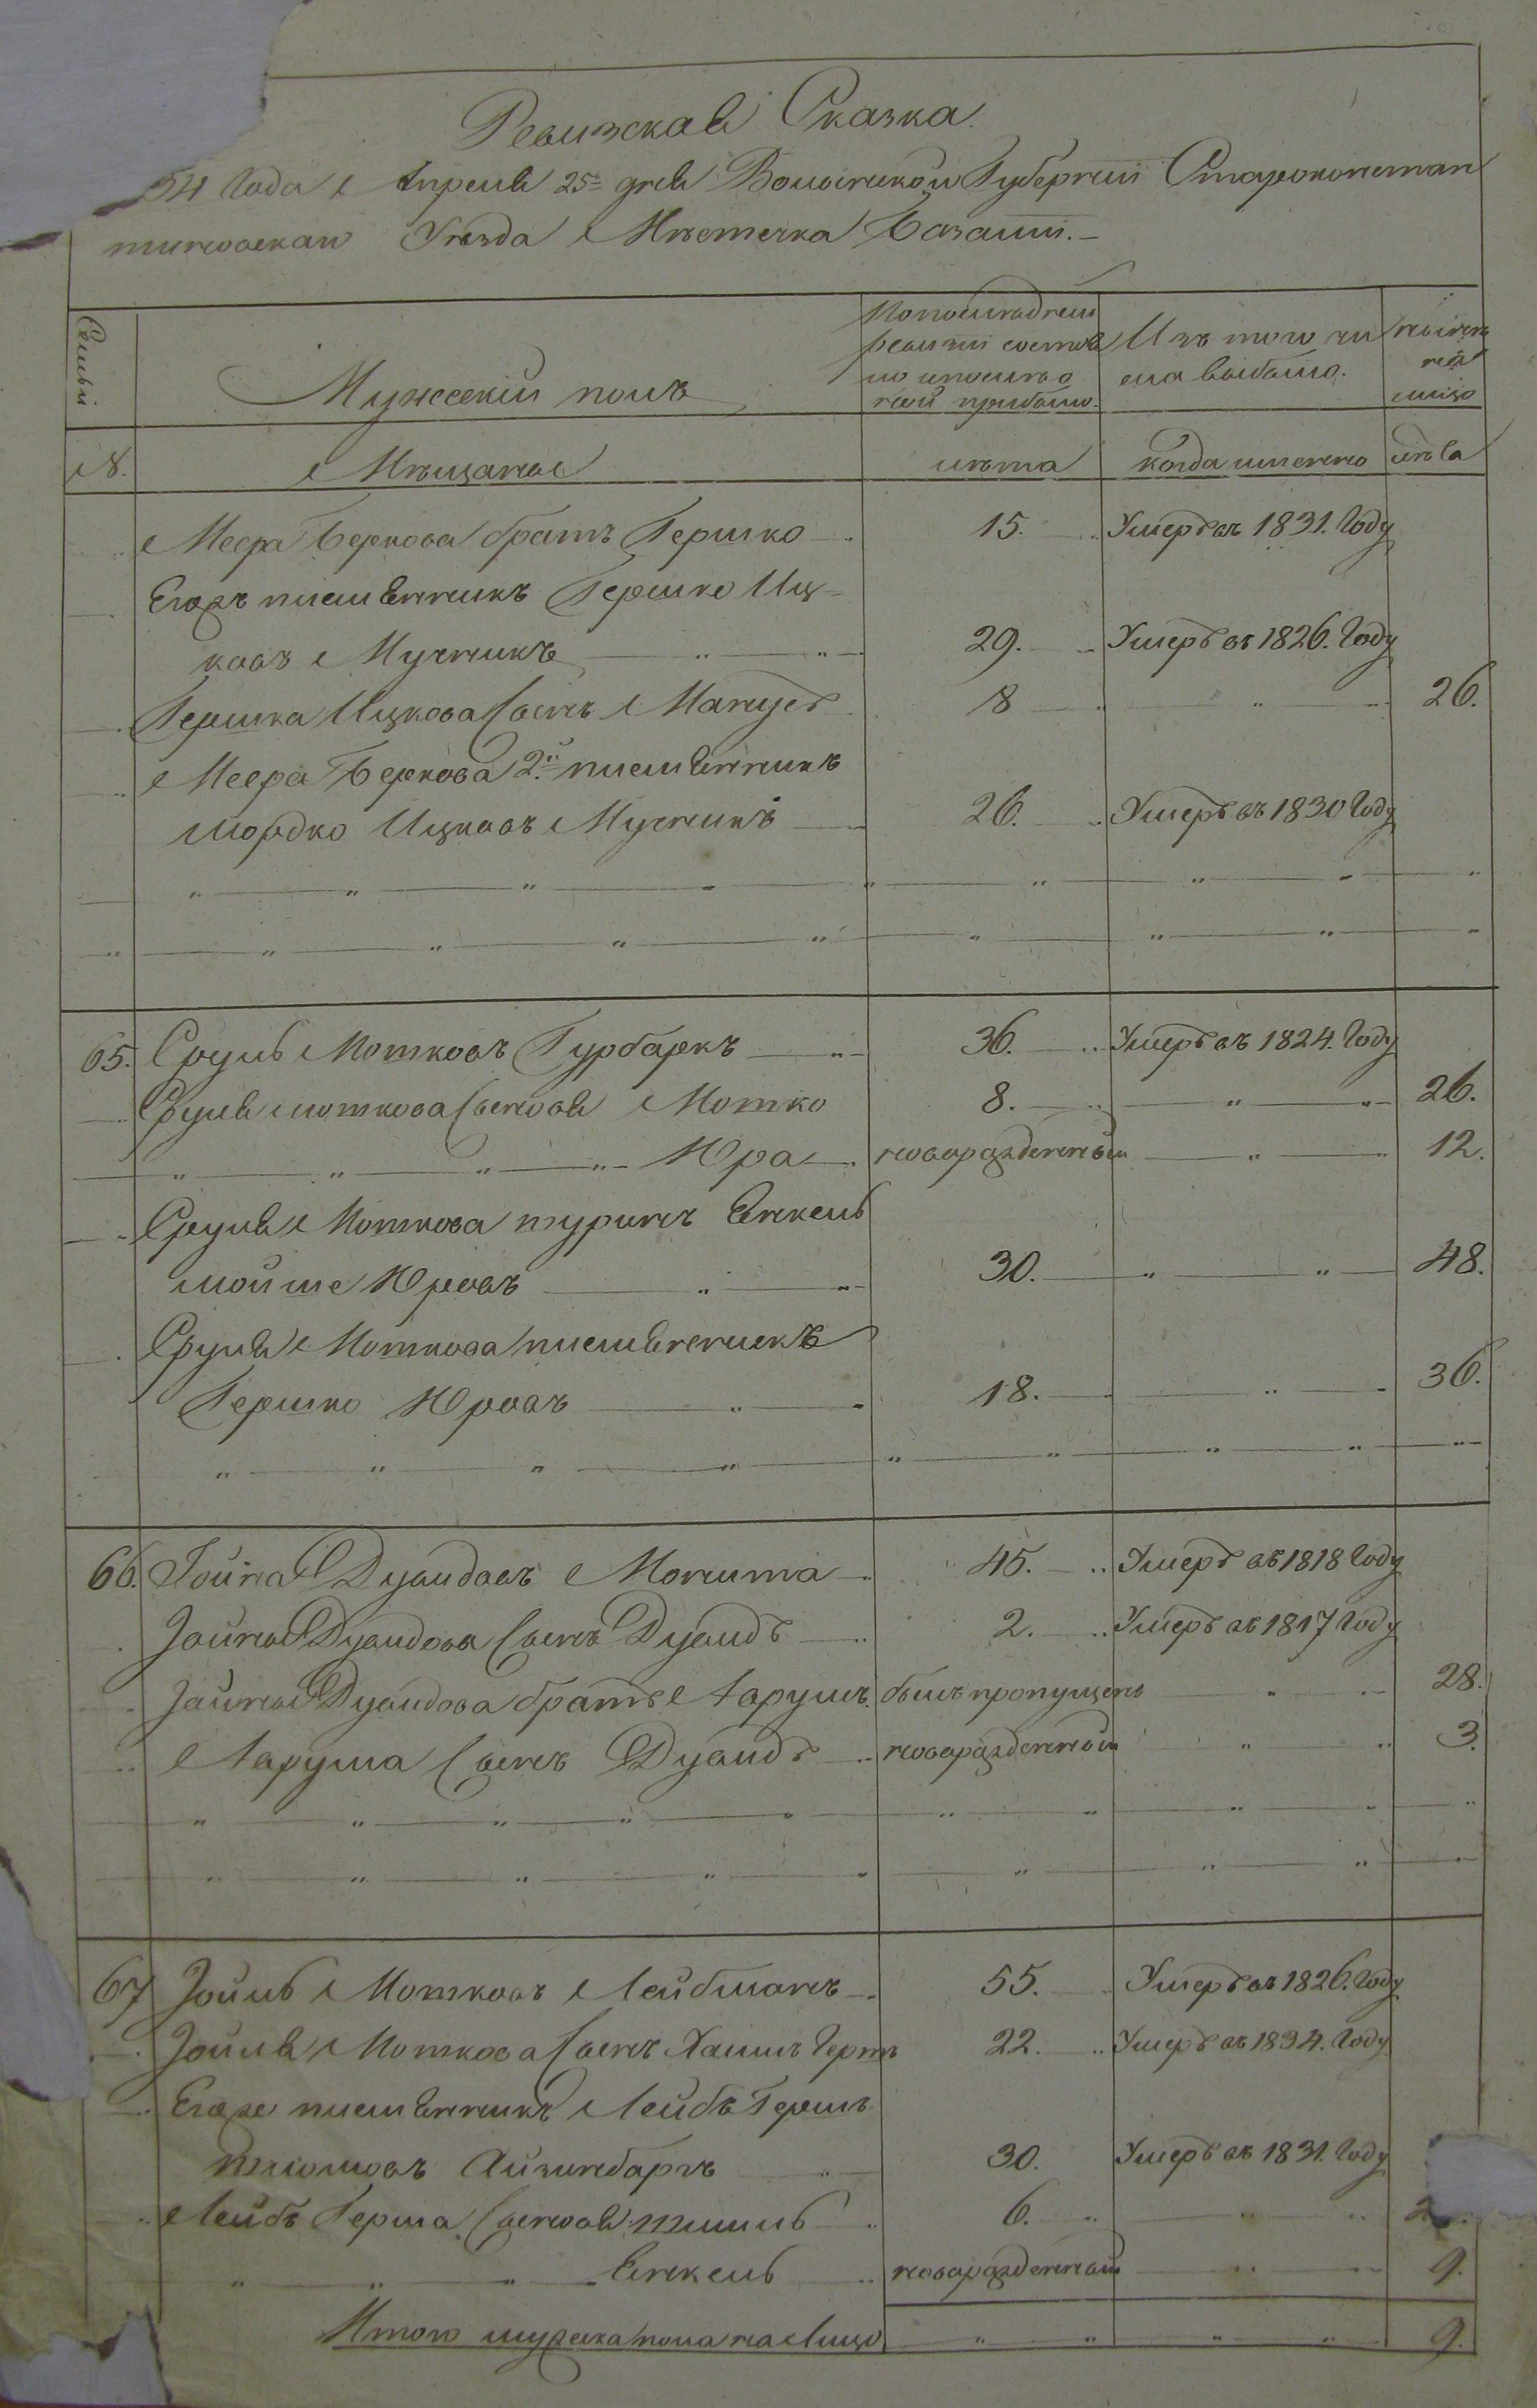 Ревизская Сказка
34 Года Апреля 25го дня Волынской Губернии Староконстан
тиновскаго Уезда Местечка Базалии.
Семьи
Мужескій полъ
По последней
ревизіи состоя
ло и после о
ной прибыло.
Изъ того чи
сла выбыло.
ныне
на
лицо
N.
Мещане
лета
когда именно
лета
Меера Беркова братъ Гершко 15. Умеръ въ 1831. Году
Егожъ племянникъ Гершко Иц-
ковъ Мучникъ 29. Умеръ въ 1826. Году
Гершка Ицкова Сынъ Манусъ 8 " 26.
Меера Беркова 2й племянникъ
Мордко Ицковъ Мучникъ 26. Умеръ въ 1830 Году
65. Сруль Мотковъ Гурбаркъ 36. Умеръ въ 1824. Году
Сруля Моткова Сыновья Мотко 8. " 26.
" " " Юра новорожденный " 12.
Сруля Моткова шуринъ Янкель
Мойше Юровъ 30. " " 48.
Сруля Моткова племянникъ
Гершко Юровъ 18. " 36.
66. Іойна Дувидовъ Монита 45. Умеръ въ 1818 Году
Іойны Дувидова Сынъ Дувидъ 2. Умеръ въ 1817 Году
Іойны Дувидова братъ Нарумъ былъ пропущенъ " 28.
Нарума Сынъ Дувидъ новорожденный " 3.
67 Іойль Мотковъ Лейбманъ 55. Умеръ въ 1826. Году
Іойля Моткова Сынъ Хаимъ Герш 22. Умеръ въ 1834. Году
Егоже племянникъ Лейбъ Гершъ
Айзинбаргъ 30. Умеръ въ 1831. Году
Лейбъ Герша Сыновья 6. "
" " " Янкель новорожденный " 9.
Итого мужеска пола на Лицо " " " " 9.